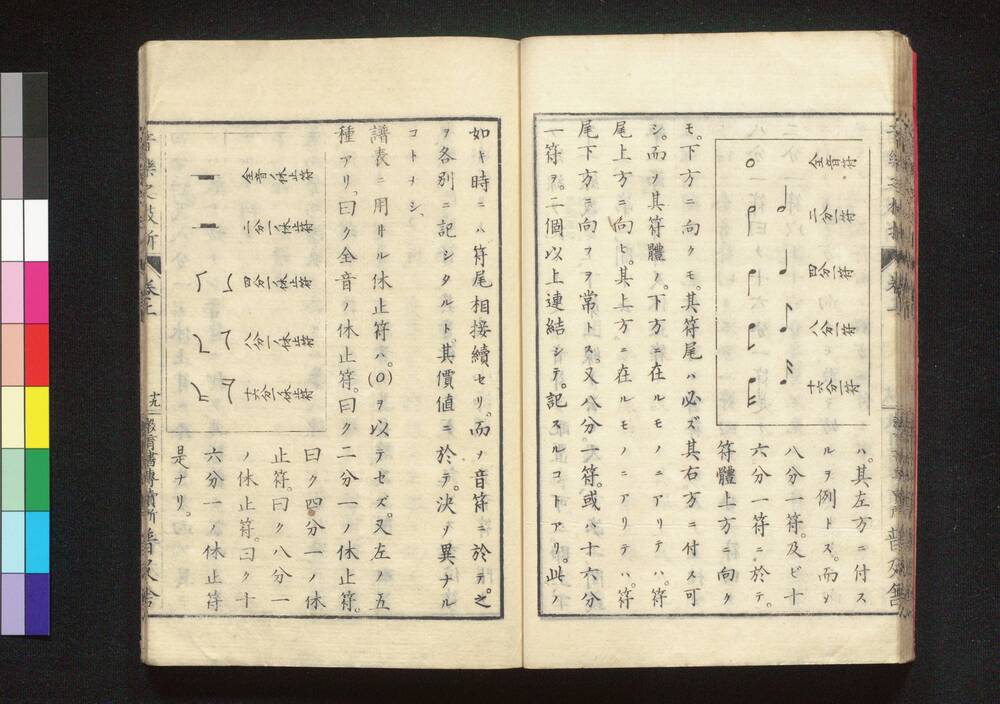 全音符
二分一符
四分一符
八分一符
十六分一符
ハ。其左方ニ付ス
ルヲ例トス。而〆
八分一符。及ビ十
六分一符ニ於テ。
符體上方ニ向ク
モ。下方ニ向クモ。其符尾ハ必ズ其右方ニ付ス可
シ。而〆其符體ノ。下方ニ在ルモノニアリテハ。符
尾上方ニ向ヒ。其上方ニ在ルモノニアリテハ。符
尾下方ニ向フヲ常トス。又八分一符。或ハ十六分
一符ヲ。二個以上連結シテ。記スルコトアリ。此ノ
如キ時ニハ符尾相接續セリ。而〆音符ニ於テ。之
ヲ各別ニ記シタルト。其價値ニ於テ。決〆異ナル
コトナシ、
譜表ニ用井ル休止符ハ。(O)ヲ以テセズ。又左ノ五
種アリ。曰ク全音ノ休止符。曰ク二分一ノ休止符。
全音ノ休止符
二分一ノ休止符
四分一ノ休止符
八分一ノ休止符
十六分一ノ休止符
曰ク四分一ノ休
止符。曰ク八分一
ノ休止符。曰ク十
六分一ノ休止符
是ナリ。
卷上
十九
普及舍